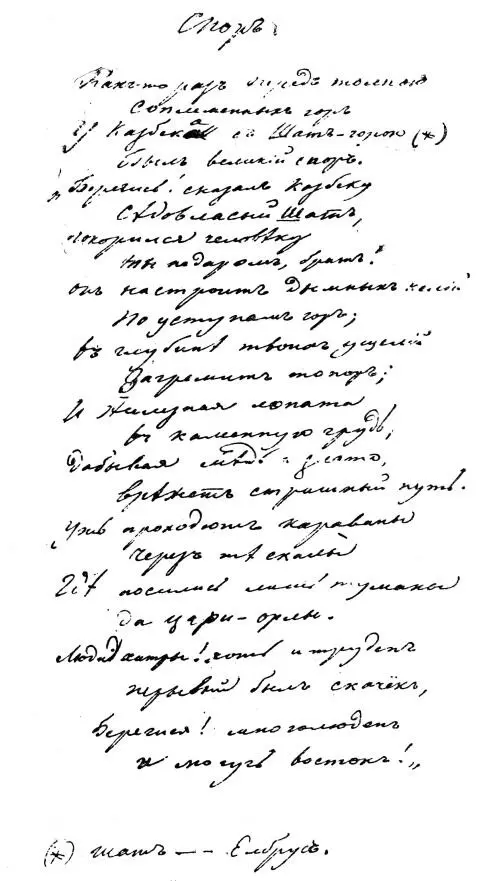 Споръ
Какъ-то разъ передъ толпою
Соплеменныхъ горъ
У Казбека съ Шатъ-горою (*)
Былъ великій споръ.
„Берегись! сказалъ Казбеку
Сѣдовласый Шатъ,
покорился человѣку
ты недаромъ, братъ!
онъ настроитъ дымныхъ келій
По уступамъ горъ;
въ глубинѣ твоихъ ущелій
Загремитъ топоръ;
И желѣзная лопата
въ каменную грудь,
Добывая мѣдь и злато,
врѣжетъ страшный путь.
Ужъ проходютъ караваны
Черезъ тѣ скалы
Гдѣ носились лишь туманы
да цари-орлы.
Люди хитры! хоть и труденъ
первый былъ скачекъ,
Берегися! многолюденъ
и могучь востокъ!„
(*) шатъ — - Елбрусъ.